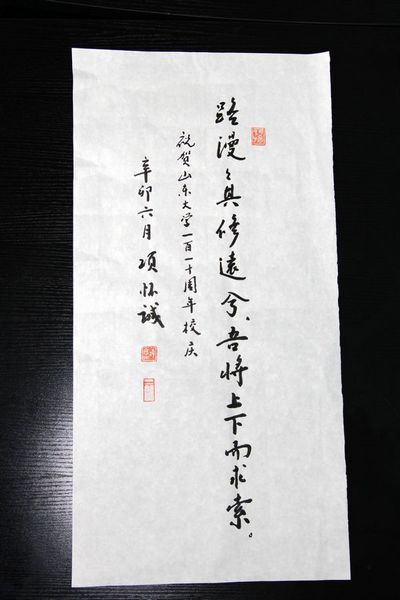 路漫〻其修遠兮、吾將上下而求索。
祝贺山东大学一百一十周年校庆
辛卯六月 项怀诚